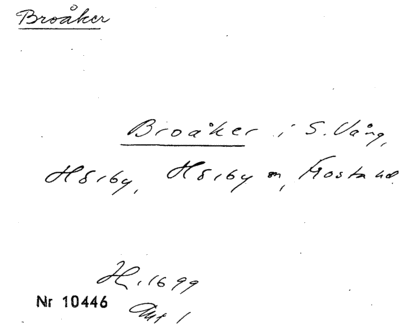 Broåker
Broåker i S. Vång,
Hörby, Hörby sn, Frosta hd.
H. 1699
Nr 10446
Akt 1